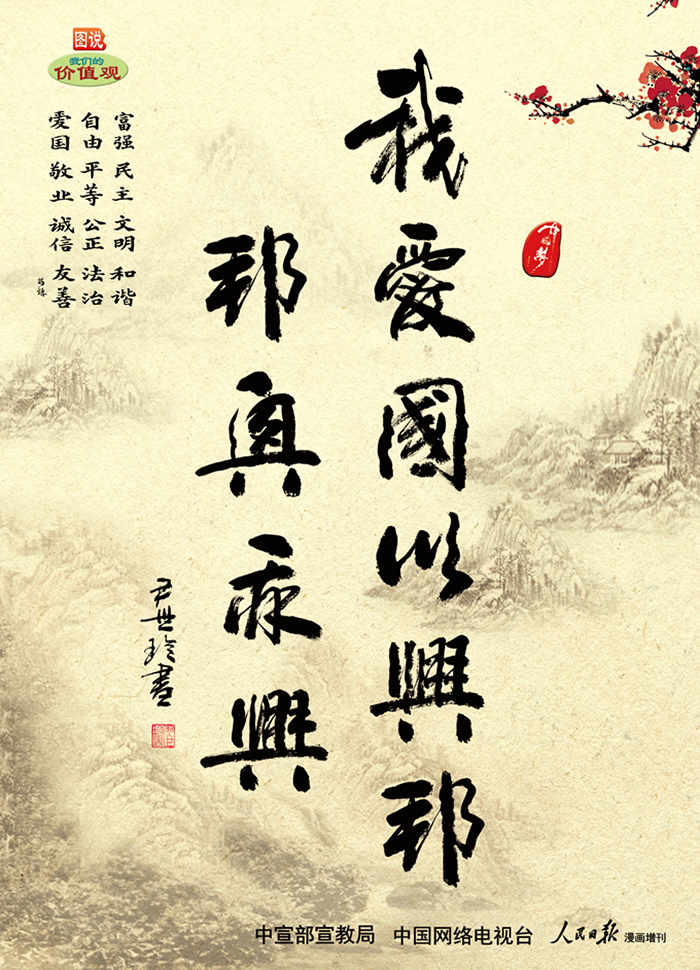 图说
我们的
价值观
富强 民主 文明 和谐
自由 平等 公正 法治
爱国 敬业 诚信 友善
中国梦
我愛國以興邦
邦興我亦興
尹世玲書
中宣部宣教局 中国网络电视台 人民日报 漫画增刊